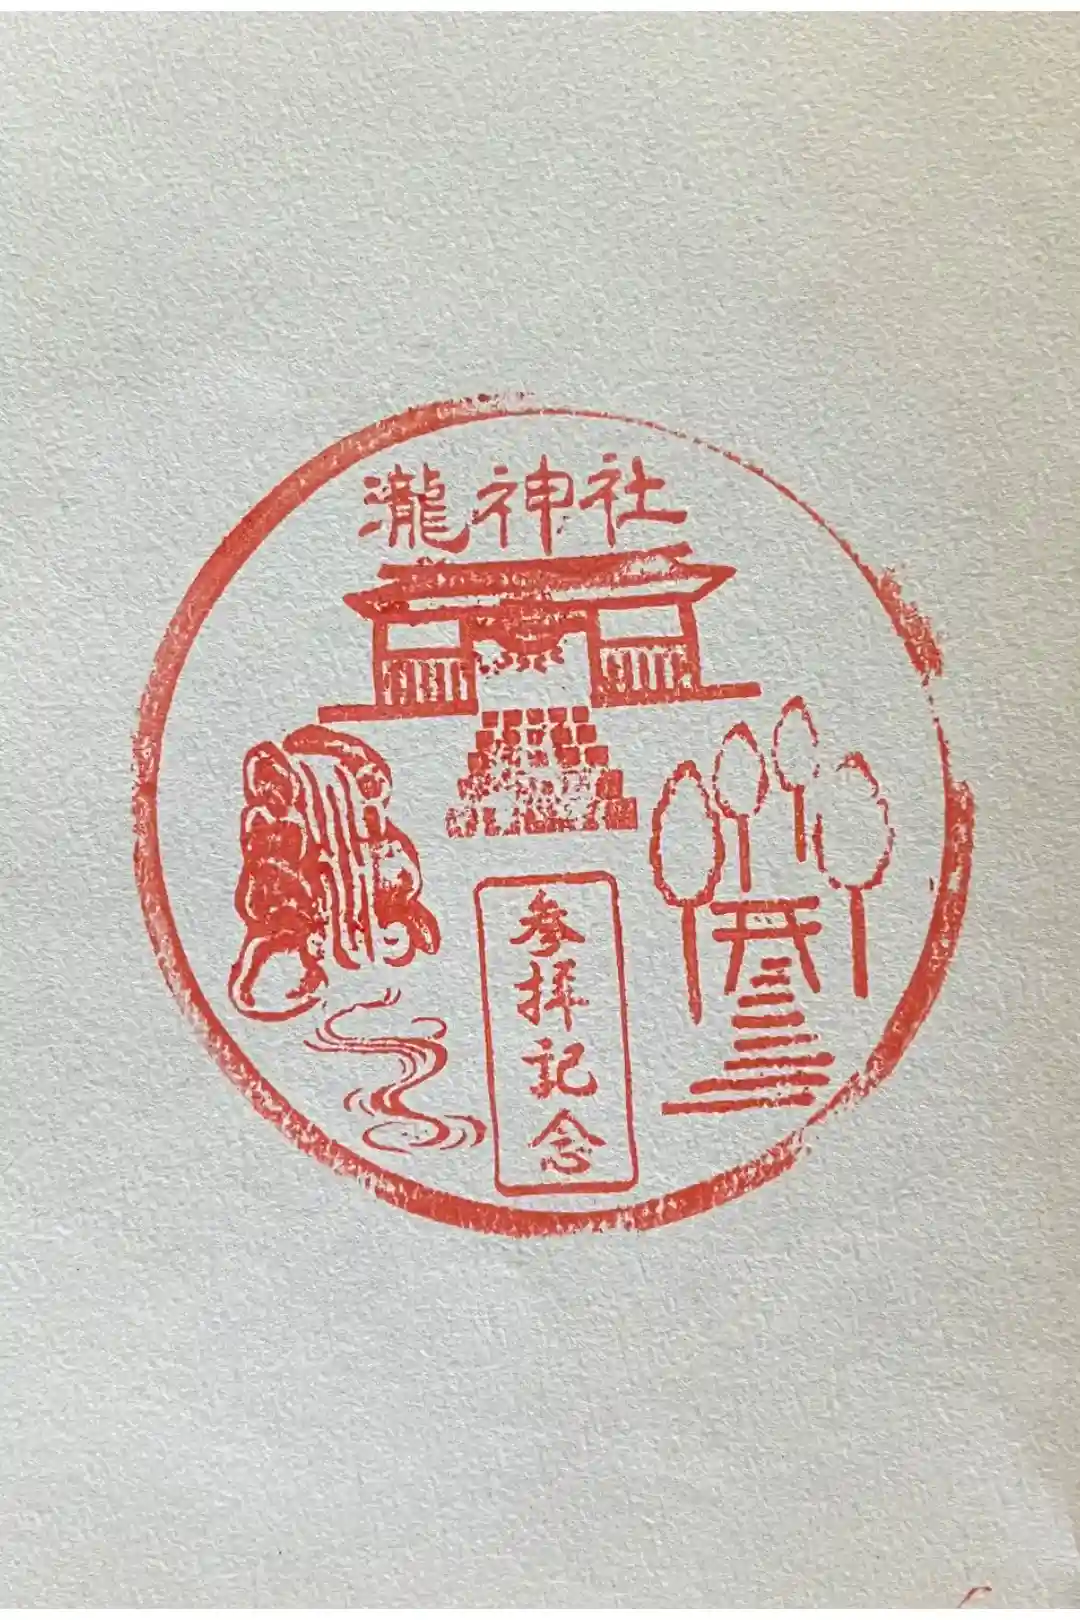 瀧神社
参拝記念